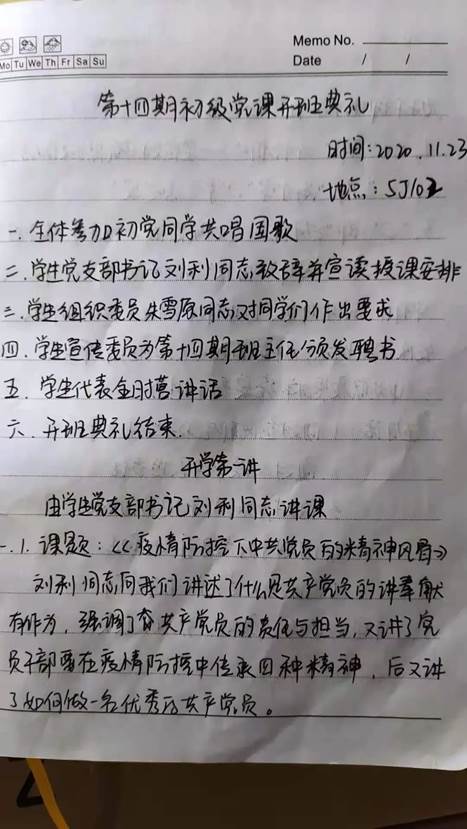 Memo No.
Mo Tu We Th Fr Sa Su
Date / /
第十四期初级党课开班典礼
时间:2020.11.23
地点:SJ102
一.全体参加初党同学共唱国歌
二.学生党支部书记刘利同志致辞并宣读授课安排
三.学生组织委员朱雪原同志对同学们作出要求
四.学生宣传委员为第十四期班主任颁发聘书
五.学生代表金时营讲话
六.开班典礼结束.
开学第一讲
由学生党支部书记刘利同志讲课
一.1.课题:《疫情防控下中共党员的精神风貌》
刘利同志向我们讲述了什么是共产党员的讲奉献
有作为,强调了共产党员的责任与担当,又讲了党
员干部要在疫情防控中传承四种精神,后又讲
了如何做一名优秀的共产党员。